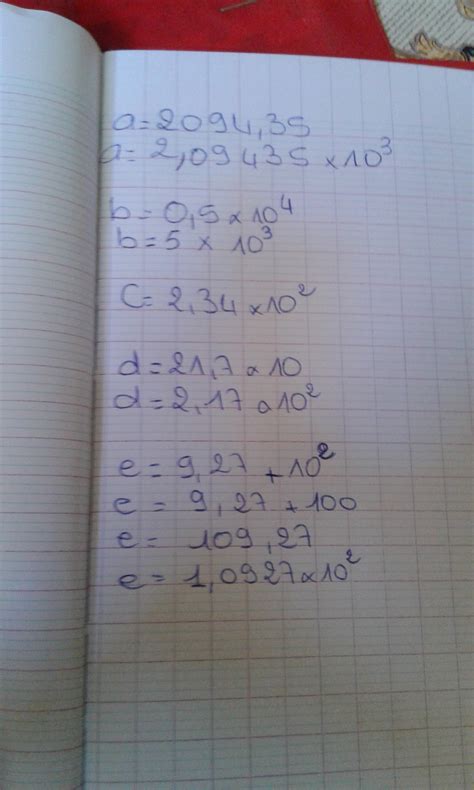 a=2094,35
a=2,09435×10³
b=0,5×10⁴
b=5 × 10³
C=2,34×10²
d=21,7×10
d=2,17×10²
e=9,27+10²
e = 9,27+100
e= 109,27
e=1,0927×10²